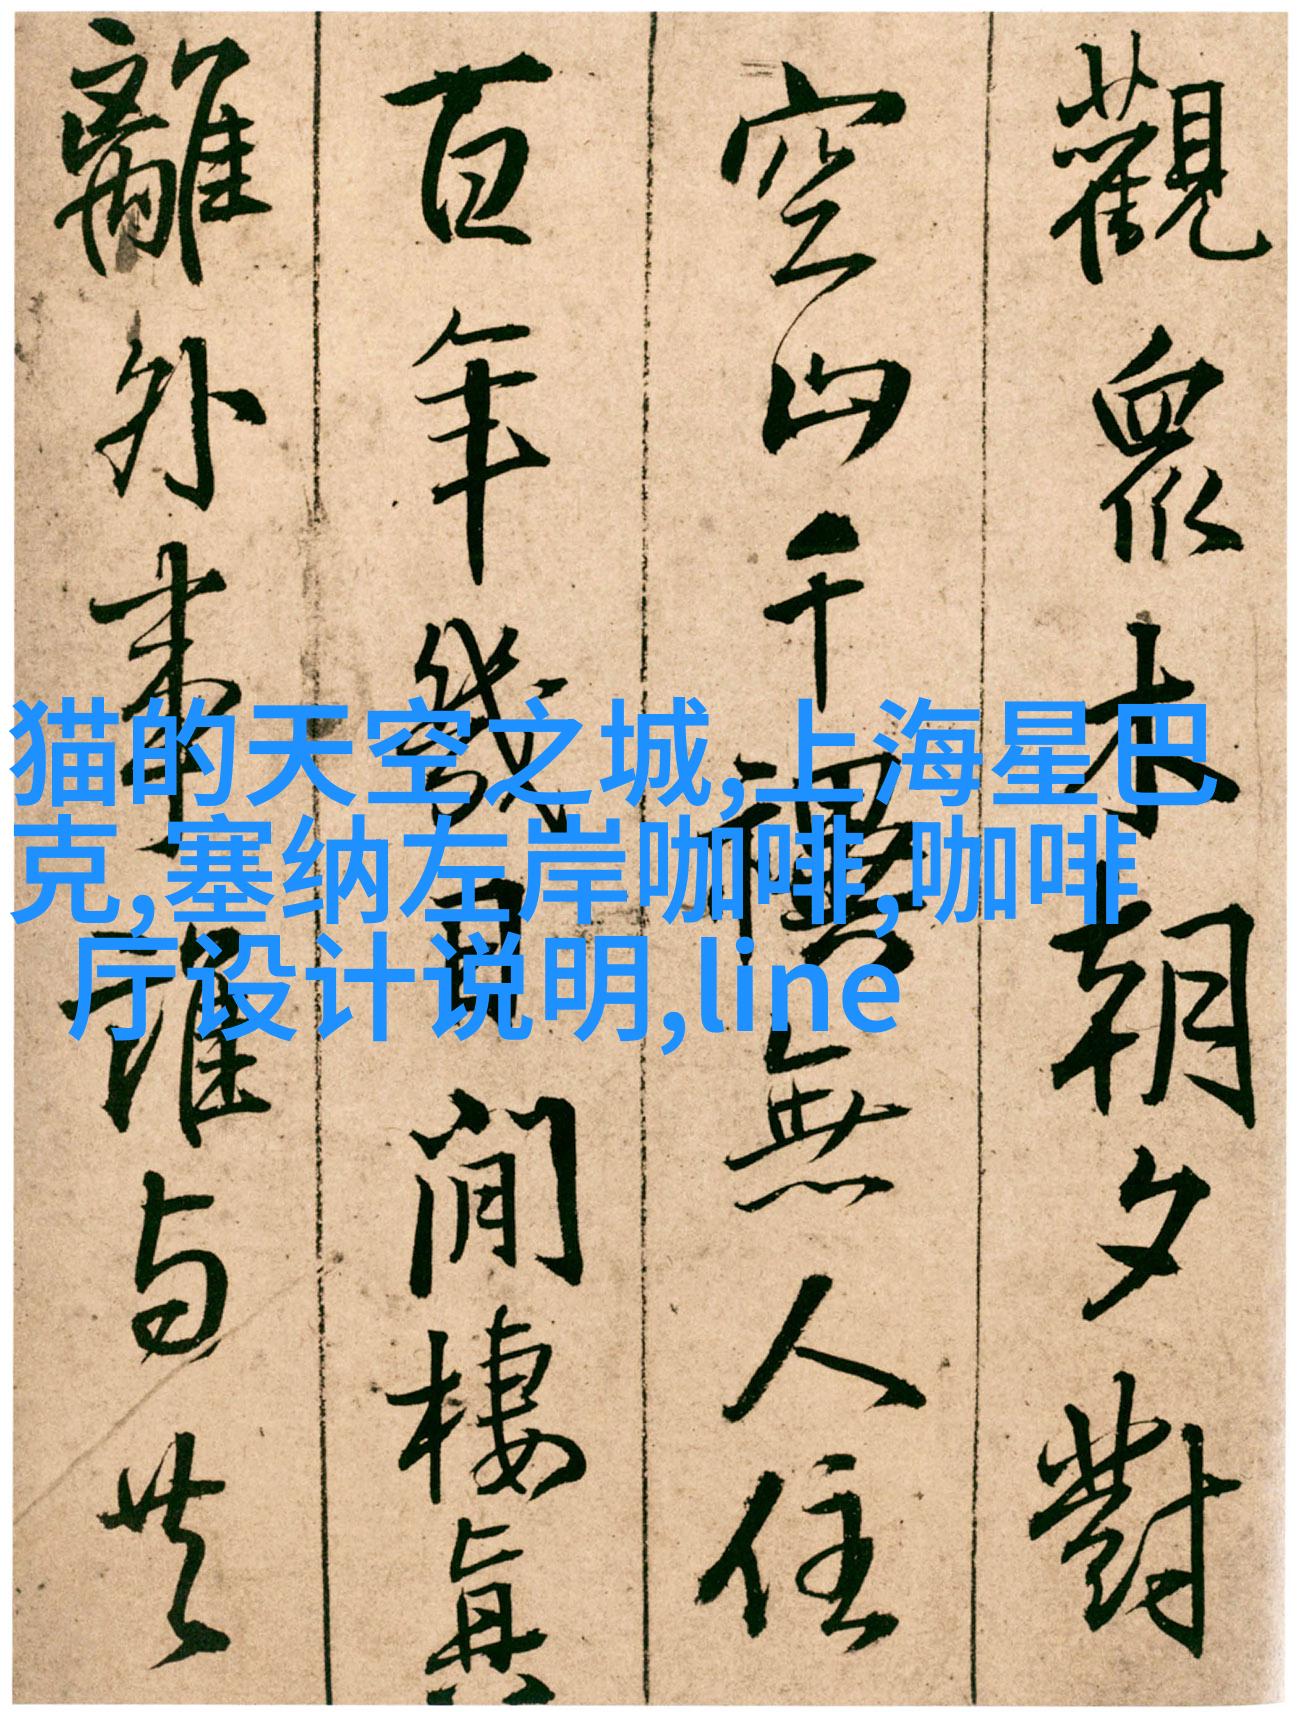 觀眾木朝夕對
空山千禩無人住
百年幾見閒棲真
離外事誰与共
猫的天空之城,上海星巴
克,塞纳左岸咖啡,咖啡
厅设计说明,line